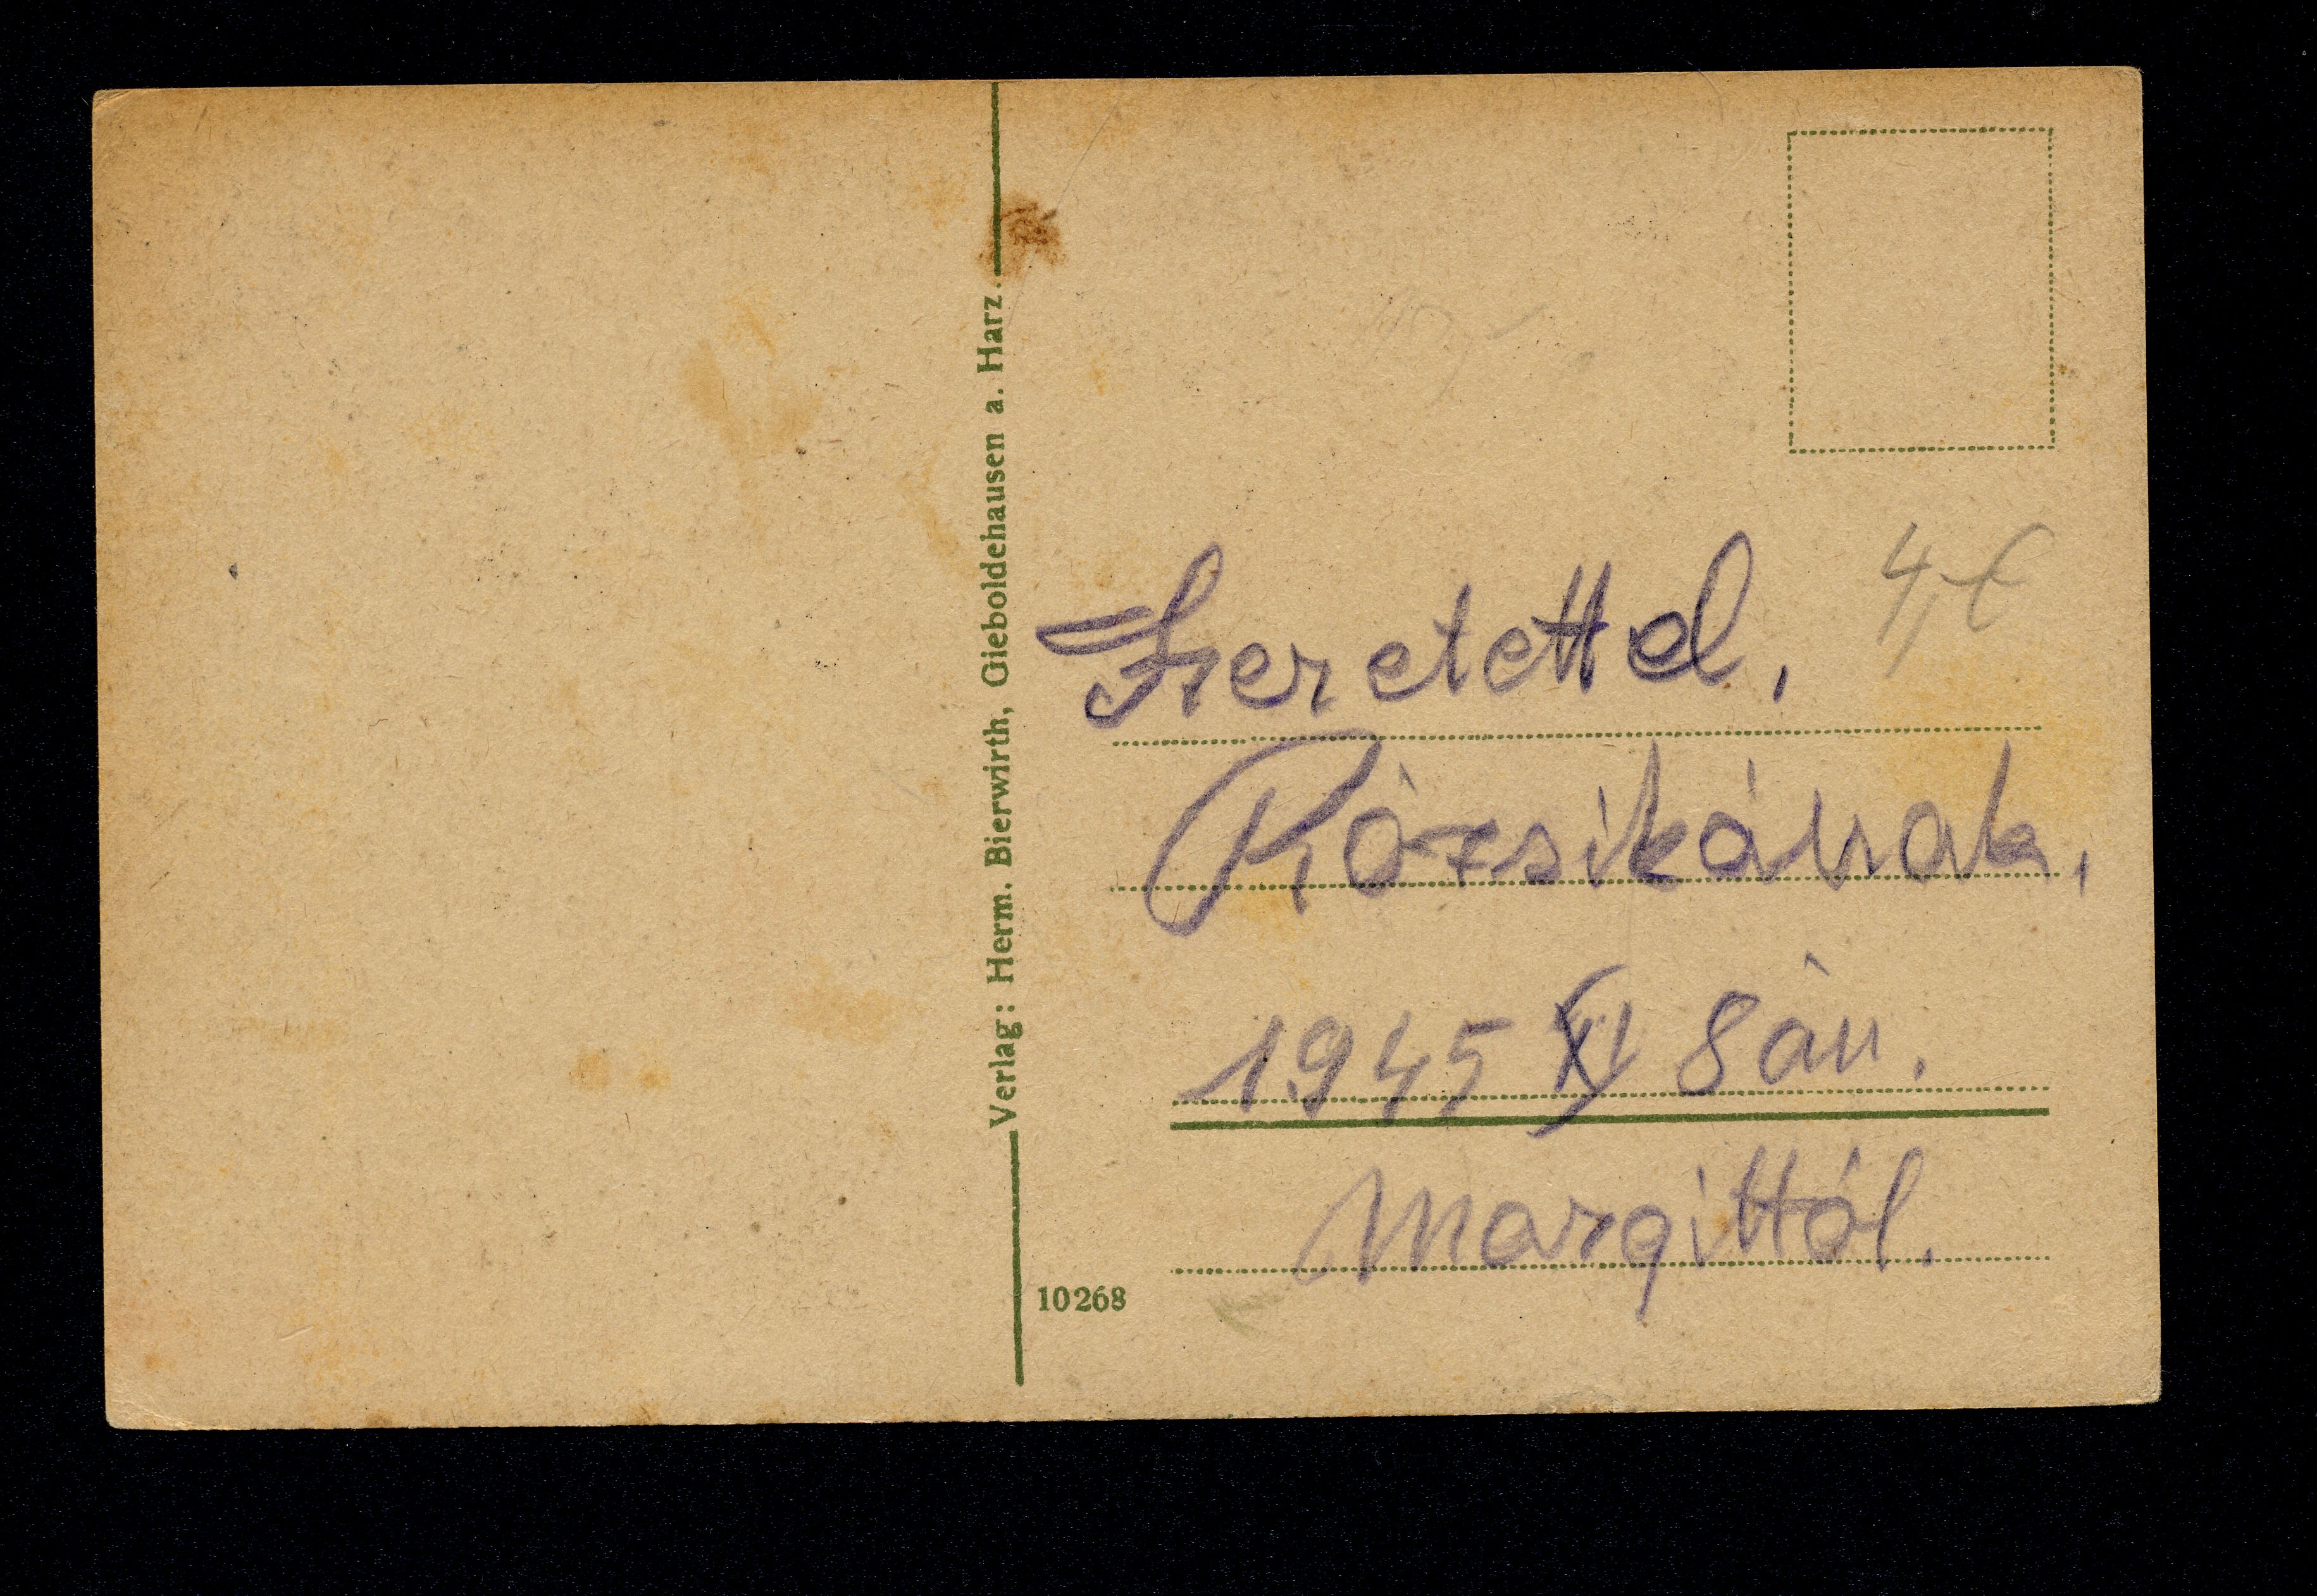 Verlag: Herm. Bierwirth, Gieboldehausen a. Harz.
Szeretettel,
4,-
Rózsikának,
1945 XI 8 án.
Margittól.
10268